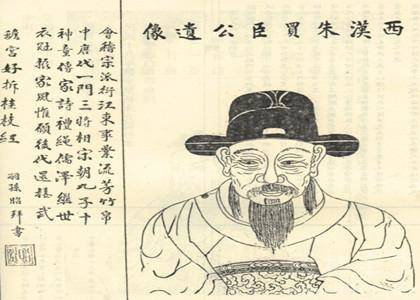 西漢朱買臣公遺像
會稽宗派衍江東事業流芳竹帛
中唐代一門三將相宋朝九子十
神童傳家詩禮綿儒澤繼世
衣冠振家風惟願後代還接武
蟾宮好折桂枝紅
孫昭拜書